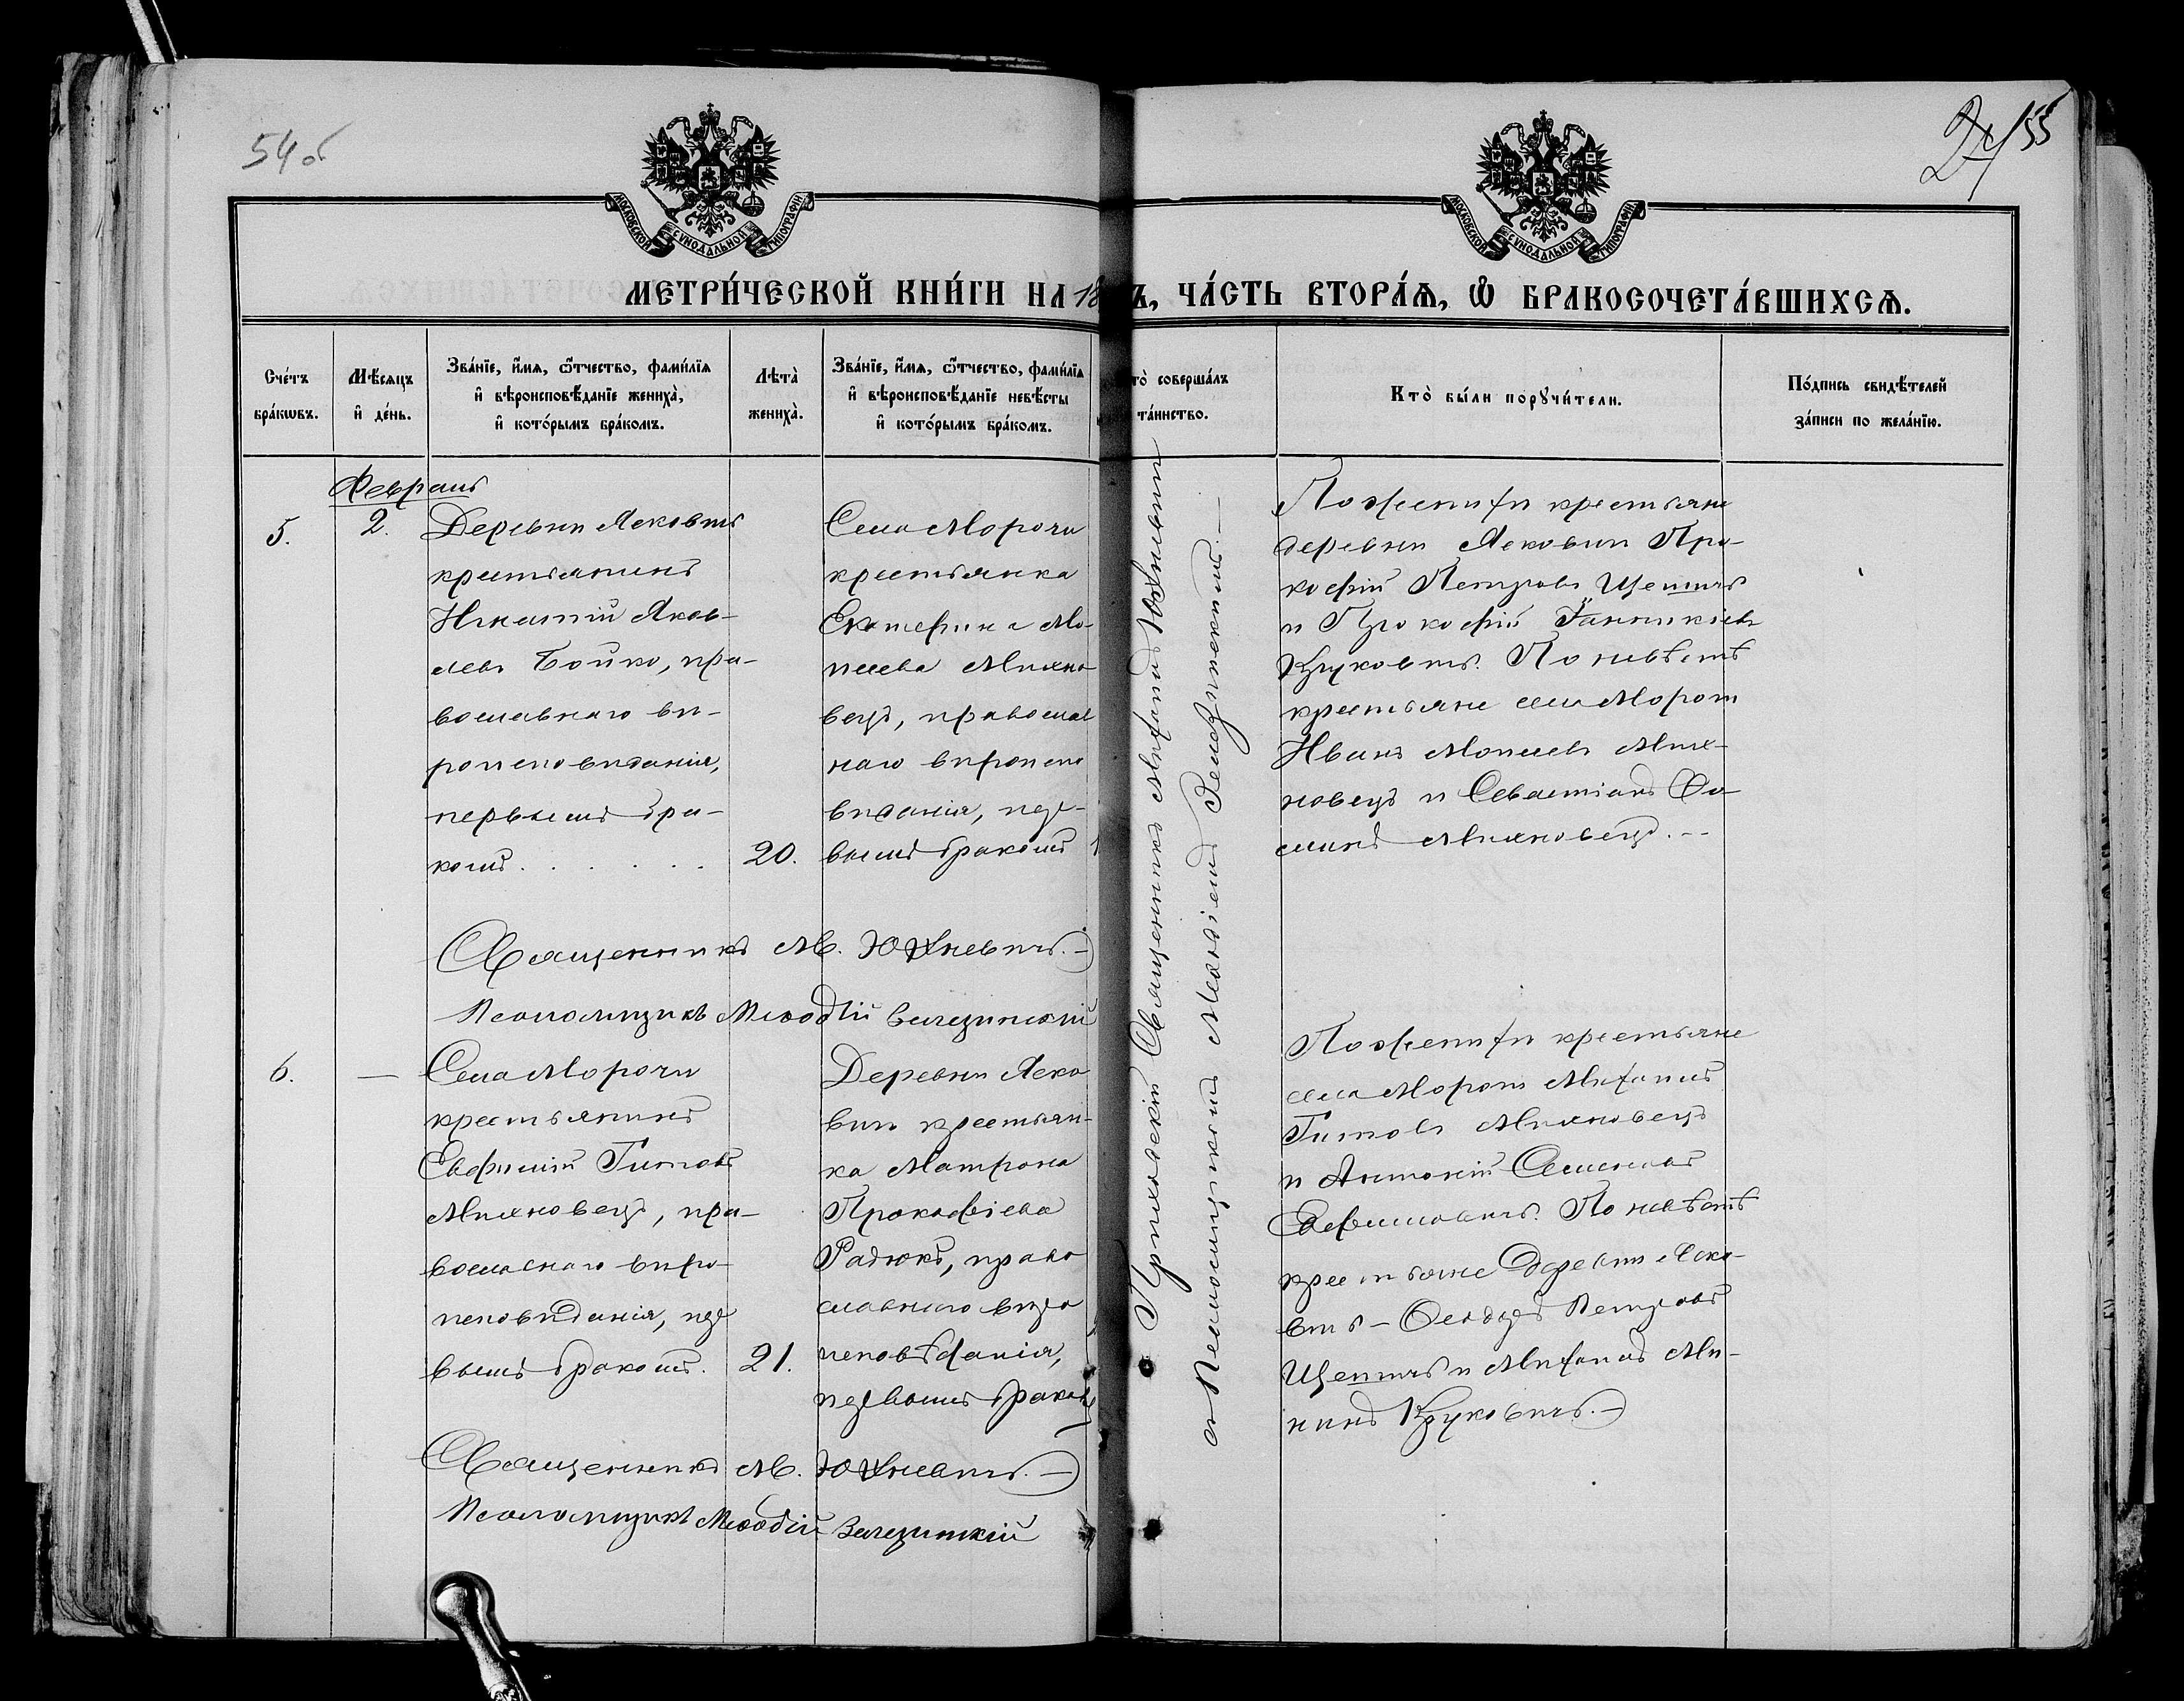 54 об
24
55
МОСКОВСКОЙ СѴНОДАЛЬНОЙ ТИПОГРАФІИ
МОСКОВСКОЙ СѴНОДАЛЬНОЙ ТИПОГРАФІИ
МЕТРИ́ЧЕСКОЙ КНИ́ГИ НА 18 Ъ, ЧА́СТЬ ВТОРА́Ѧ, Ѽ БРАКОСОЧЕТА́ВШИХСѦ.
Сче́тъ бра́кѡвъ.
Мѣ́сяцъ и҆ де́нь.
Зва́нїе, и҆́мѧ, ѻ҆́тчество, фамн́лїѧ и҆ вѣроисповѣ́данїе жениха̀, и҆ кото́рымъ бра́комъ.
Лѣта̀ жениха̀.
Зва́нїе, и҆́мѧ, ѻ҆́тчество, фами́лїѧ и҆ вѣроисповѣ́данїе невѣ́сты и҆ кото́рымъ бра́комъ.
то̀ соверша́лъ та́инство.
Кто̀ бы́ли порꙋчи́тели.
По́дпись свидѣ́телей за́писи по жела́нїю.
Февраль
5.
2.
Деревни Лековичъ
крестьянинъ
Игнатій Яков-
левъ Бойко, пра-
вославнаго вѣ-
роисповѣданія,
первымъ бра-
комъ . . . . . .
20.
Села Морочи
крестьянка
Екатерина Мо-
исеева Михно-
вецъ, православ
наго вѣроиспо
вѣданія, пер-
вымъ бракомъ
Приходскій Священникъ Митрофанъ Юхневичъ
съ Псаломщикомъ Меѳодіемъ Зелезинскимъ. —
По женихѣ крестьяне
деревни Лековичъ Про-
кофій Петровъ Щепичъ
и Прокофій Іанникіевъ
Круковичъ. По невѣстѣ
крестьяне села Морочи
Иванъ Моисеевъ Мих-
новецъ и Севастіанъ Фо-
минъ Михновецъ. —
Священникъ М. Юхневичъ. —
Псаломщикъ Меѳодій Зелезинскій
6.
—
Села Морочи
крестьянинъ
Евфимій Титовъ
Михновецъ, пра-
вославнаго вѣро-
исповѣданія, пер
вымъ бракомъ.
21.
Деревни Леко
вичъ крестьян-
ка Матрона
Прокофіева
Радюкъ, право
славнаго вѣро
исповѣданія,
первымъ бракомъ
По женихѣ крестьяне
села Морочи
Титовъ Михновецъ
и Антоній Семеновъ
Ефимовичъ. По невѣстѣ
крестьяне деревни Леко-
вичъ — Ѳеодоръ Петровъ
Щепичъ и
нинъ Круковичъ. —
Священникъ М. Юхневичъ. —
Псаломщикъ Меѳодій Зелезинскій